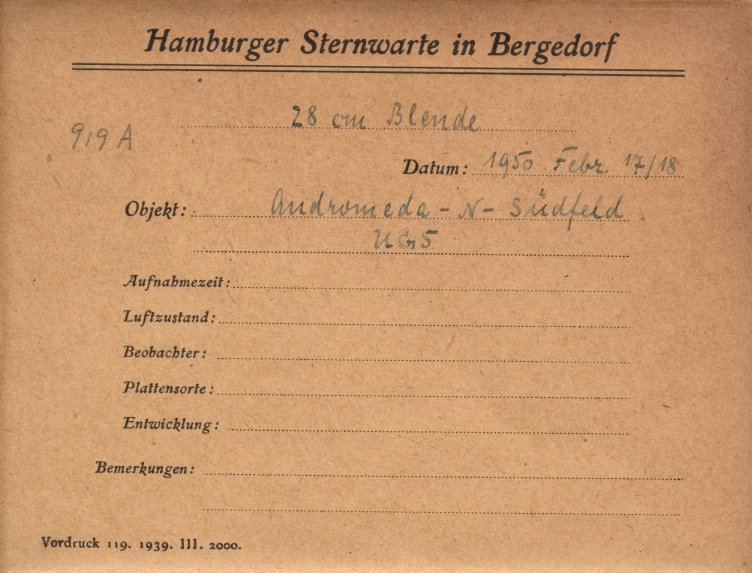 Hamburger Sternwarte in Bergedorf
28 cm Blende
919 A
Datum: 1950 Febr. 17/18
Objekt: Andromeda - N - Südfeld
UG5
Aufnahmezeit:
Luftzustand:
Beobachter:
Plattensorte:
Entwicklung:
Bemerkungen:
Vordruck 119. 1939. III. 2000.